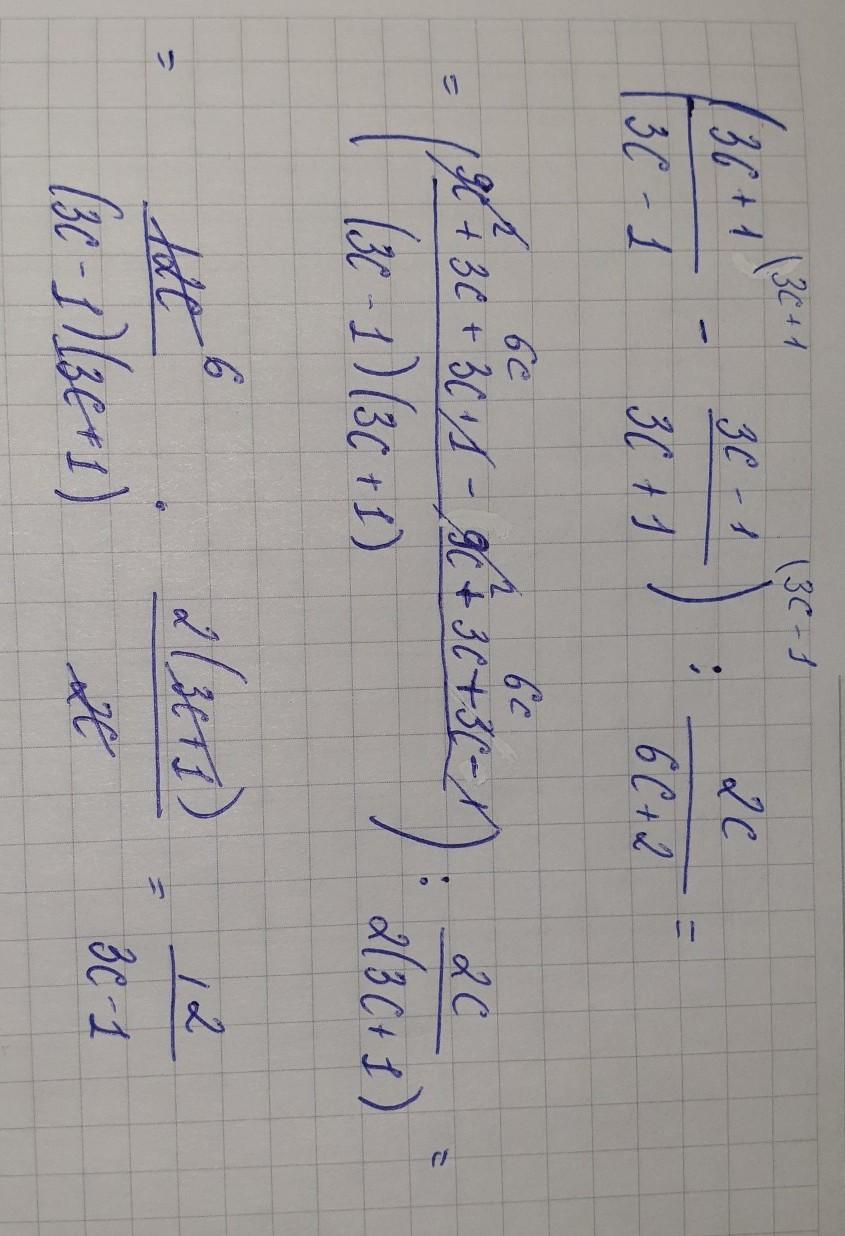 ( (3c+1)/(3c-1) (3c+1 - (3c-1)/(3c+1) (3c-1 ) : 2c/(6c+2) =
= ( (9c² + 3c + 3c + 1 - 9c² + 3c + 3c - 1)/((3c-1)(3c+1)) ) : 2c/(2(3c+1)) =
6c 6c
= 12c/((3c-1)(3c+1)) 6 · 2(3c+1)/2c = 12/(3c-1)